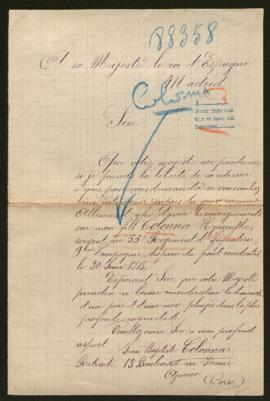 88358
A sa Majesté le roi d'Espagne
Madrid
Colonna
Sire
Que votre majesté me pardonne
si je prends la liberté de m'adresser
à vous pour vous demander si vous voulez
bien auprès du gouvernement
Allemand
sur mon fils Colonna Hyacinthe,
sergent au 55e Régiment d'Infanterie,
9me Compagnie, disparu du front occidental
le 30 Juin 1915.
Espérant Sire, que votre Majesté
prendra en bonne considération la demande
d'un père et d'une mère plongés dans la plus
profonde
Veuillez avoir Sire mon profond
respect
Jean Baptiste Colonna
Retraité 13 Boulevard
Ajaccio
(Corse)